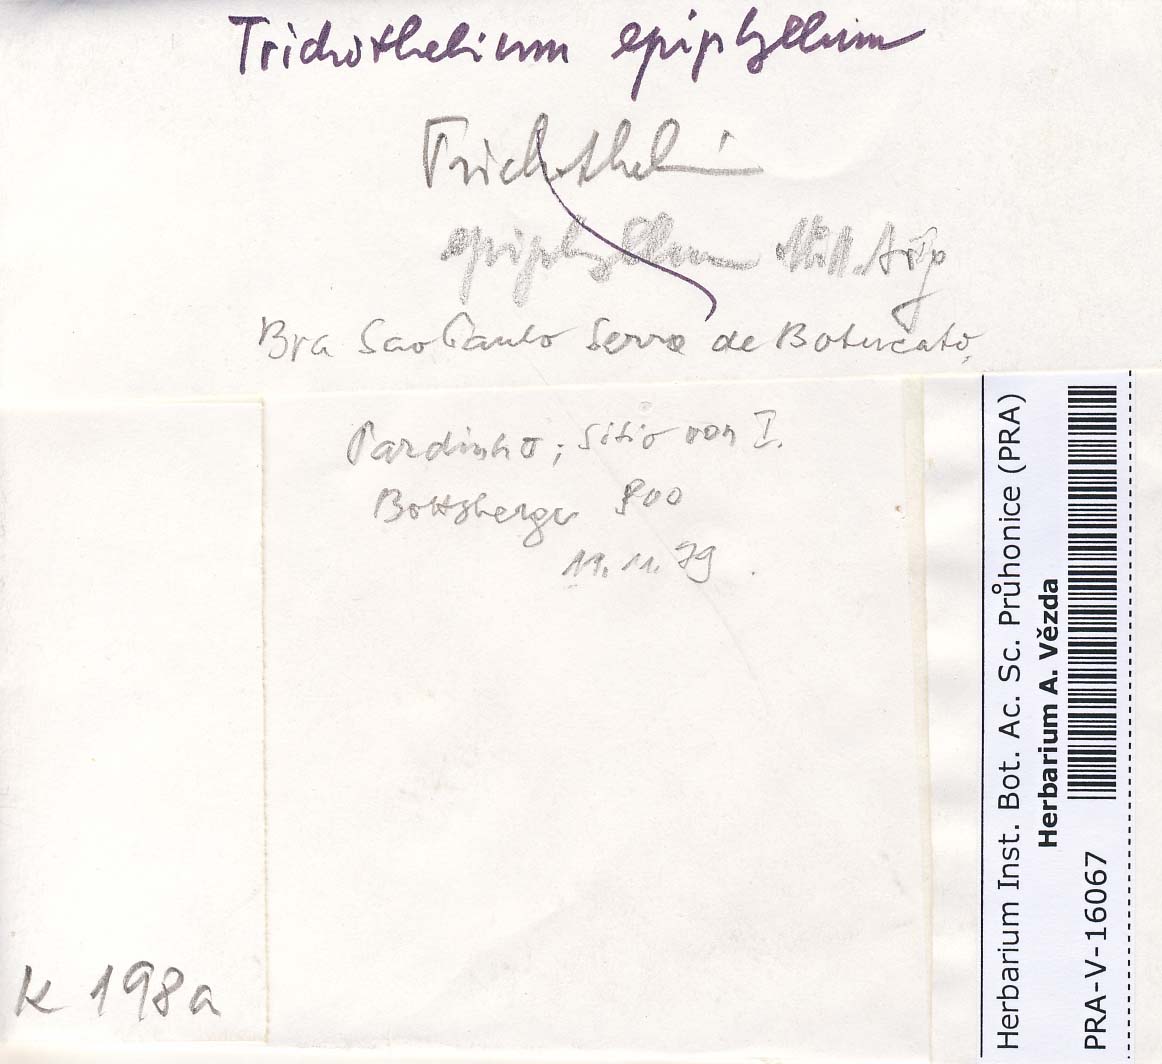 Trichothelium epiphyllum
Trichotheli
epiphyllum Müll. Arg
Bra Sao Paulo Serra de Botucato,
Pardinho; Sitio von I.
Bottsberger 900
11.11.79.
K 198a
Herbarium Inst. Bot. Ac. Sc. Průhonice (PRA)
Herbarium A. Vězda
PRA-V-16067